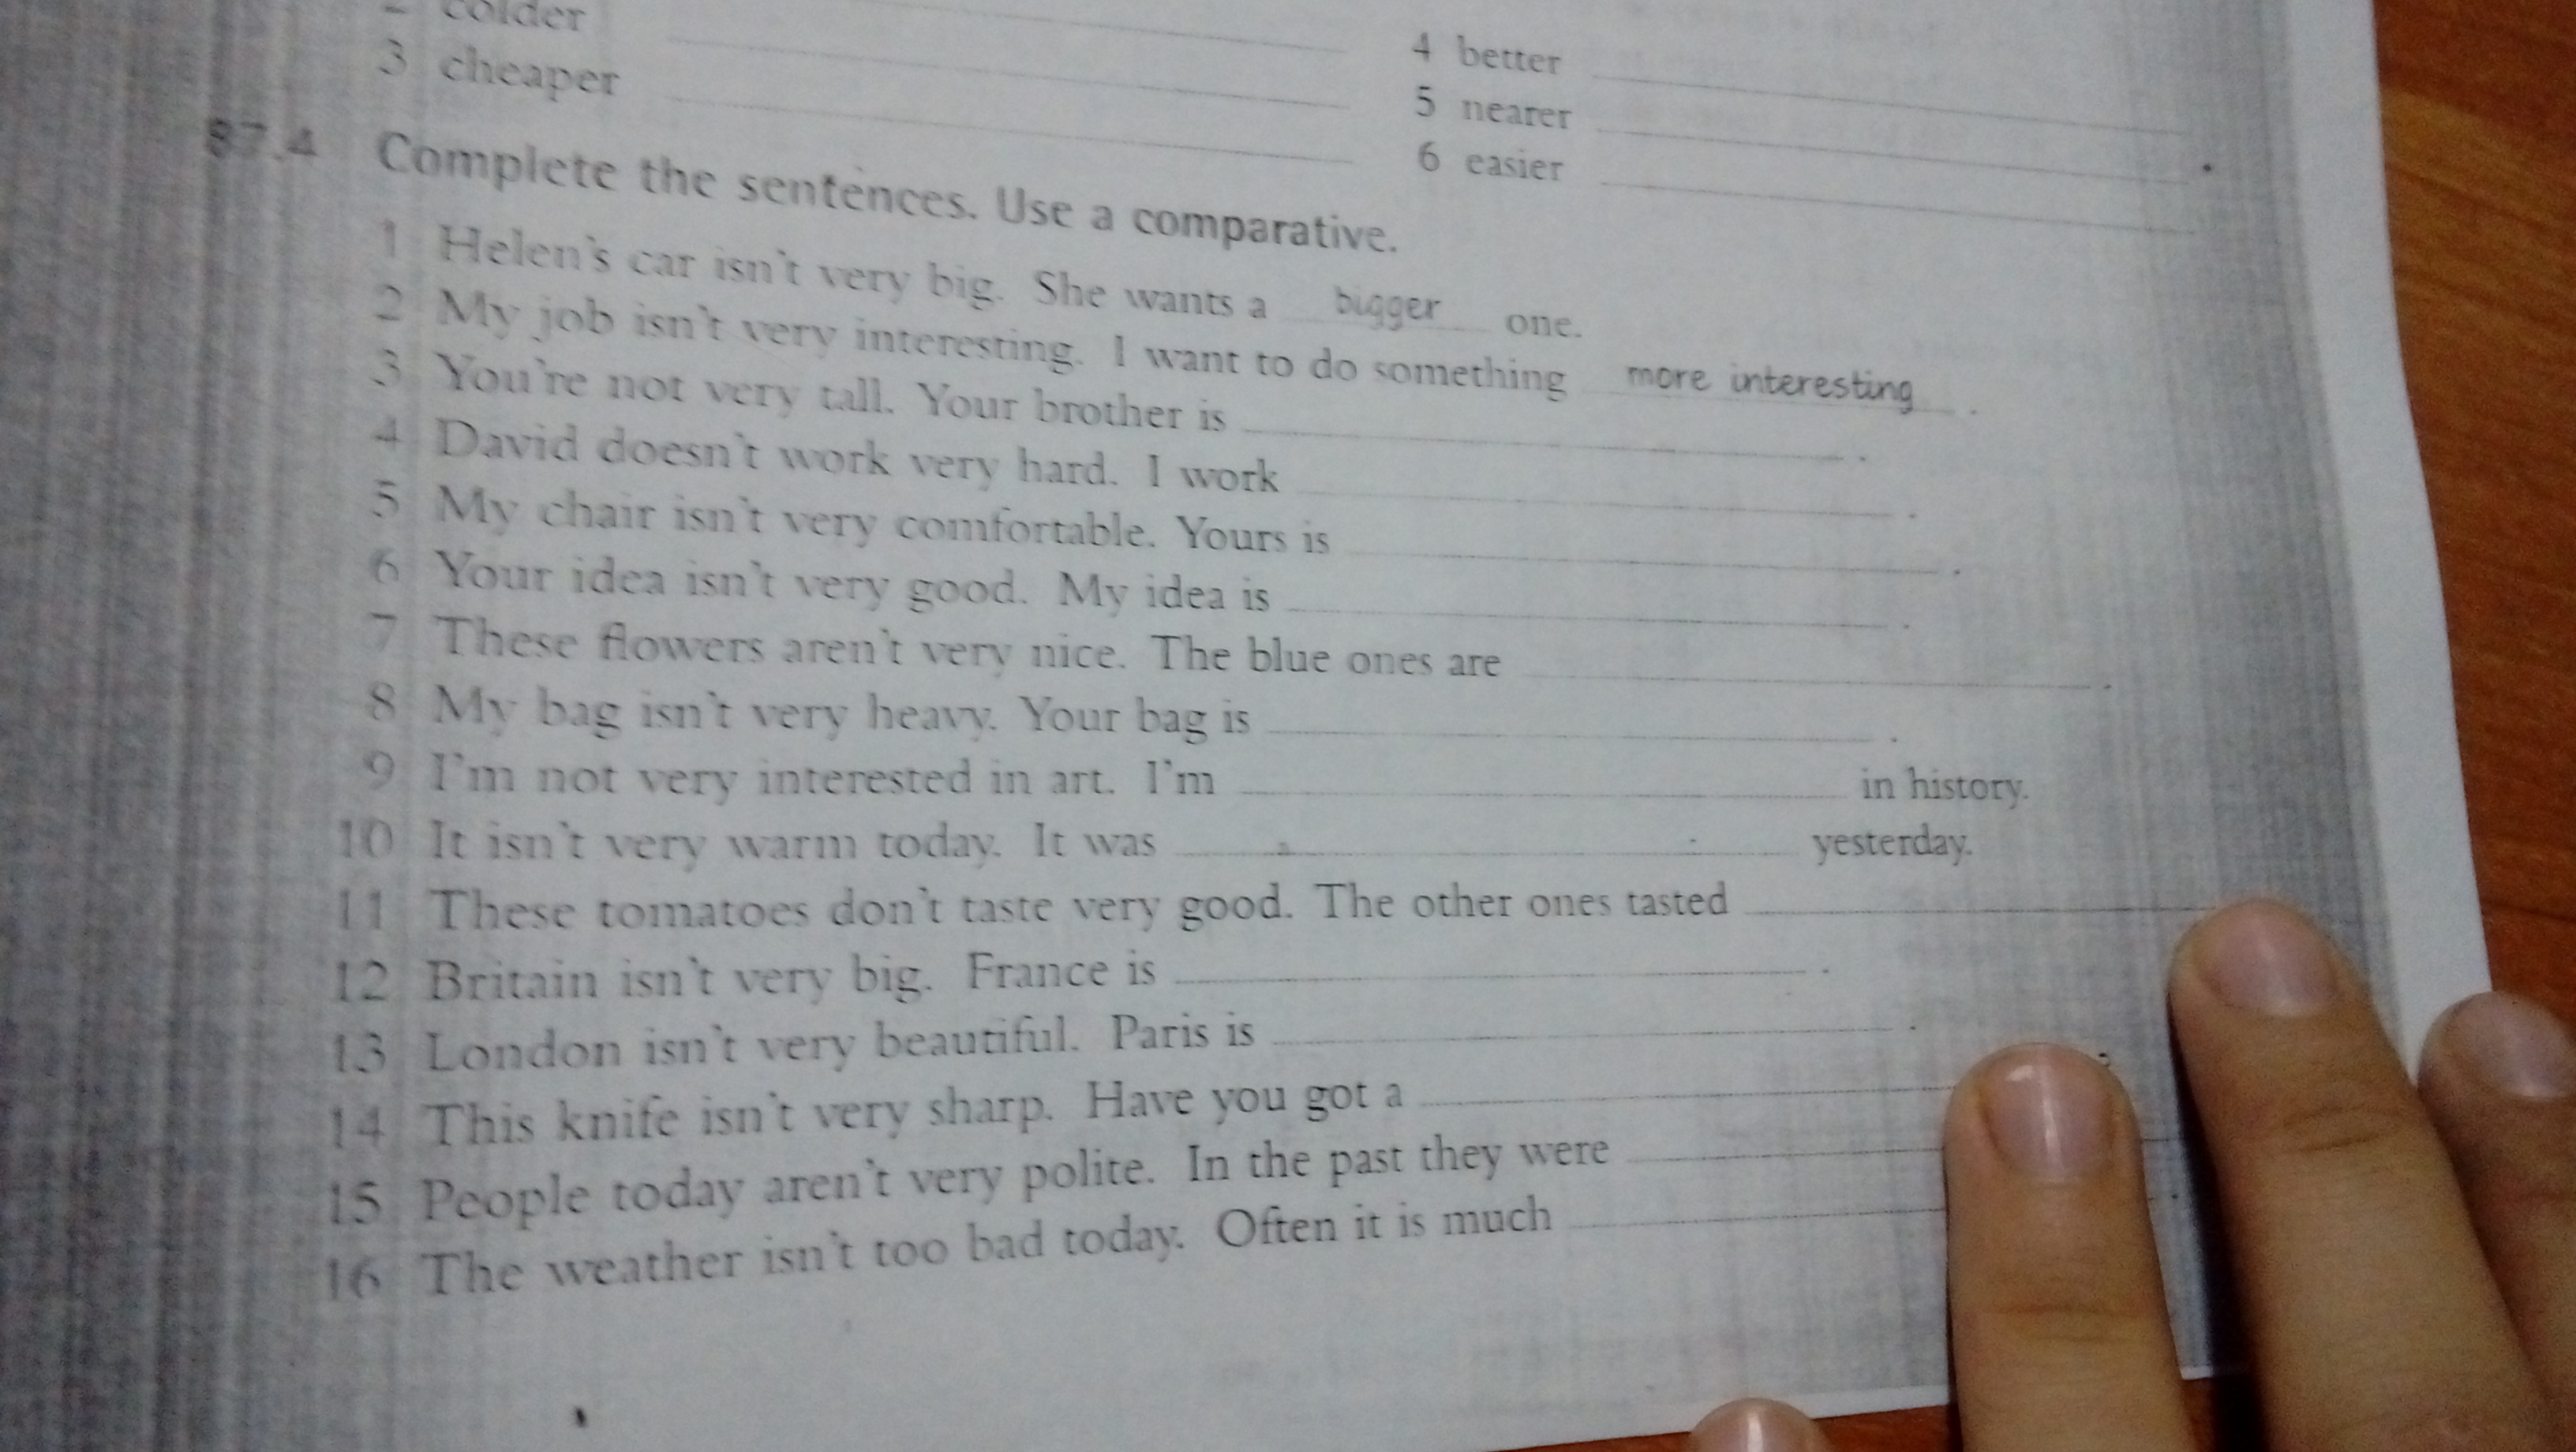 2 colder
3 cheaper
4 better
5 nearer
6 easier
87.4 Complete the sentences. Use a comparative.
1 Helen's car isn't very big. She wants a bigger one.
2 My job isn't very interesting. I want to do something more interesting .
3 You're not very tall. Your brother is .
4 David doesn't work very hard. I work .
5 My chair isn't very comfortable. Yours is .
6 Your idea isn't very good. My idea is .
7 These flowers aren't very nice. The blue ones are .
8 My bag isn't very heavy. Your bag is .
9 I'm not very interested in art. I'm in history.
10 It isn't very warm today. It was yesterday.
11 These tomatoes don't taste very good. The other ones tasted
12 Britain isn't very big. France is .
13 London isn't very beautiful. Paris is .
14 This knife isn't very sharp. Have you got a
15 People today aren't very polite. In the past they were
16 The weather isn't too bad today. Often it is much